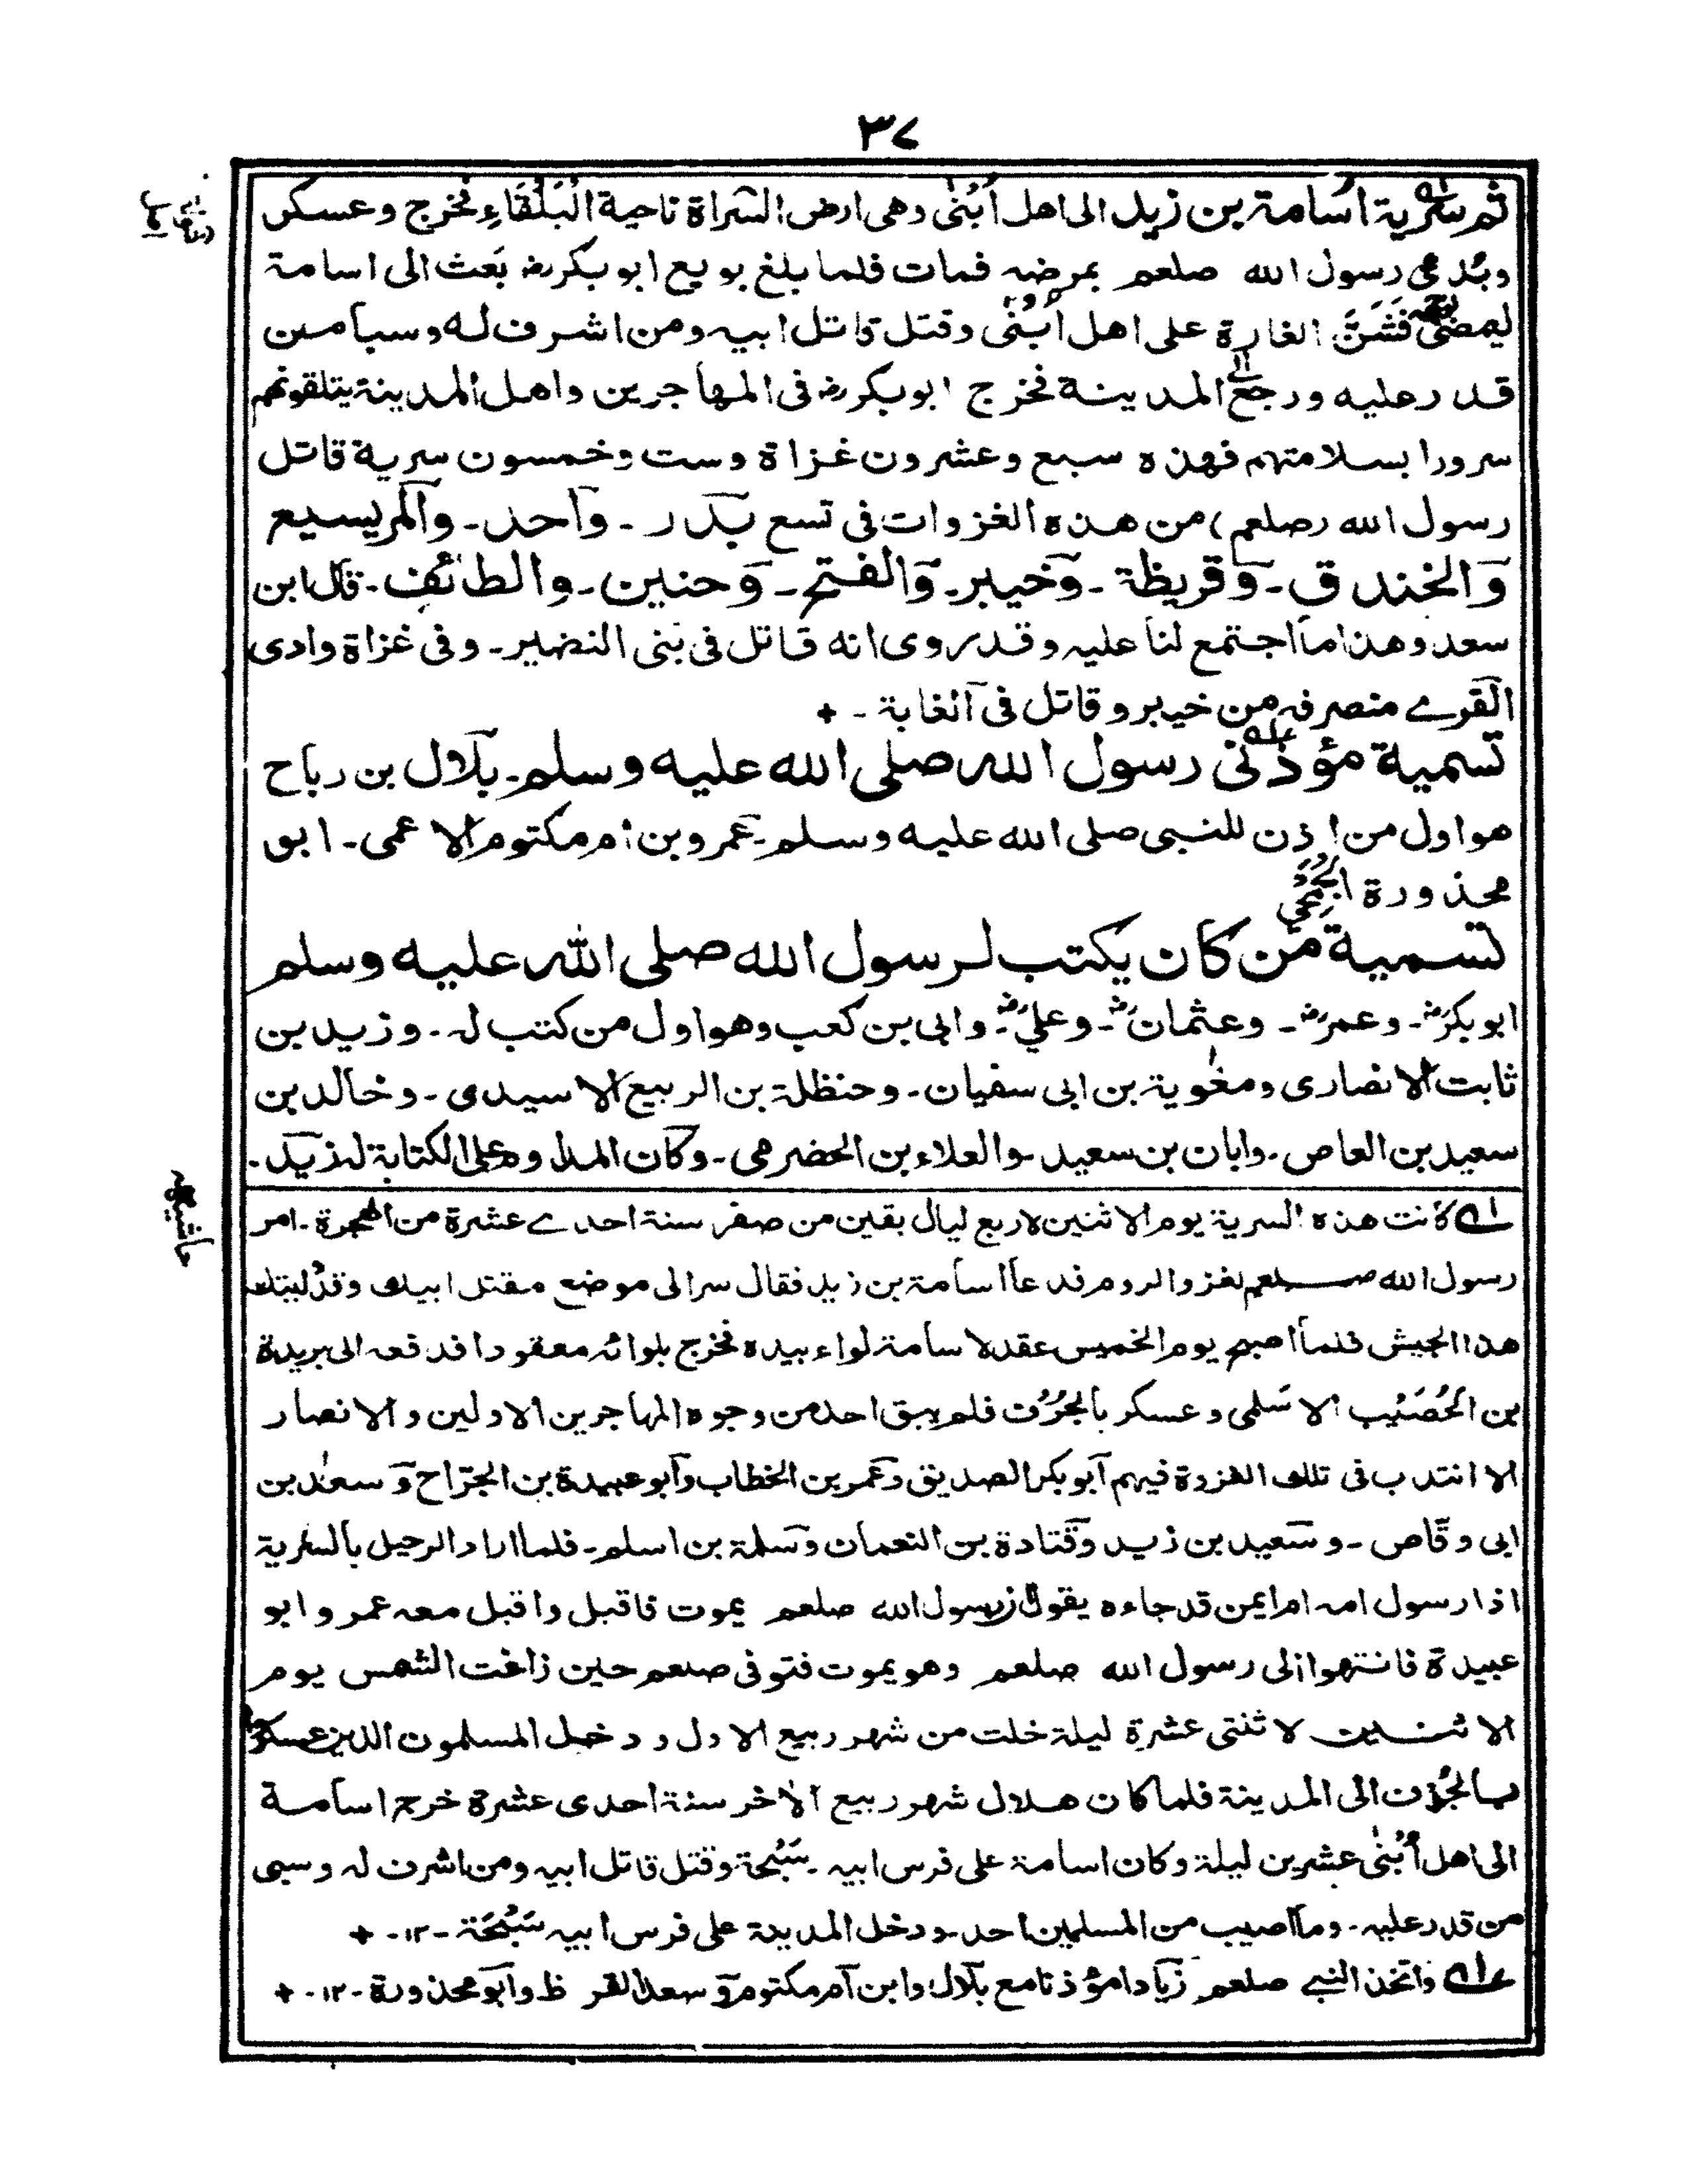 ٣٧
ثم سرية اسامة بن زيد الى اهل اُبْنٰى وهى ارض الشراة ناحية الْبَلْقَاءِ فخرج وعسكر
وبُدعى رسول الله صلعم بمرضه فمات فلما بلغ بويع ابوبكررض بَعث الى اسامة
ليمضى فَشَنَّ الغارة على اهل اُبْنٰى وقتل قاتل ابيه ومن اشرف له وسبا من
قدر عليه ورجع الى المدينة فخرج ابوبكررض فى المهاجرين واهل المدينة يتلقونهم
سرورا بسلامتهم فهذه سبع وعشرون غزاة وست وخمسون سرية قاتل
رسول الله (صلعم) من هذه الغزوات فى تسع بدر - واحد - والمريسيع
والخندق - وقريظة - وخيبر - والفتح - وحنين - والطائف - قال ابن
سعد وهذا ما اجتمع لنا عليه وقد روى انه قاتل فى بنى النضير - وفى غزاة وادى
القرے منصرفه من خيبر وقاتل فى الغابة - +
تسمية مؤذنى رسول الله صلى الله عليه وسلم - بلال بن رباح
هو اول من اذن للنبى صلى الله عليه وسلم - عمرو بن ام مكتوم الاعمى - ابو
محذورة الجُمَحِي
تسمية من كان يكتب لرسول الله صلى الله عليه وسلم
ابوبكررض - وعمررض - وعثمانرض - وعليرض - وابى بن كعب وهو اول من كتب له - وزيد بن
ثابت الانصارى ومعٰوية بن ابى سفيان - وحنظلة بن الربيع الاسيدى - وخالد بن
سعيد بن العاص - وابان بن سعيد - والعلاء بن الحضرمى - وكان المداوم على الكتابة له زيد -
حاشيه
١ـه كانت هذه السرية يوم الاثنين لاربع ليال بقين من صفر سنة احدے عشرة من الهجرة - امر
رسول الله صلعم لغزو الروم فدعا اسامة بن زيد فقال سر الى موضع مقتل ابيك وقد وليتك
هذا الجيش فلما اصبح يوم الخميس عقد لاسامة لواء بيده فخرج بلوائه معقودا فدفعه الى بريدة
بن الْحُصَيْب الاسْلمى وعسكر بالجُرُف فلم يبق احد من وجوه المهاجرين الاولين والانصار
الا انتدب فى تلك الغزوة فيهم ابوبكر الصديق وعمر بن الخطاب وابوعبيدة بن الجراح وسعد بن
ابى وقاص - وسعيد بن زيد وقتادة بن النعمان وسلمة بن اسلم - فلما اراد الرحيل بالسرية
اذا رسول امه ام ايمن قد جاءه يقول ان رسول الله صلعم يموت فاقبل واقبل معه عمر وابو
عبيدة فانتهوا الى رسول الله صلعم وهو يموت فتوفى صلعم حين زاغت الشمس يوم
الاثنين لاثنتى عشرة ليلة خلت من شهر ربيع الاول ودخل المسلمون الذين عسكروا
بالجُرُف الى المدينة فلما كان هلال شهر ربيع الآخر سنة احدى عشرة خرج اسامة
الى اهل اُبْنٰى عشرين ليلة وكان اسامة على فرس ابيه سَبْحة وقتل قاتل ابيه ومن اشرف له وسبى
من قدر عليه - وما اصيب من المسلمين احد - ودخل المدينة على فرس ابيه سَبْحَة - ١٢ - +
٢ـه واتخذ النبے صلعم زيادا مؤذنا مع بلال وابن ام مكتوم وسعد القرظ وابومحذورة - ١٢ - +